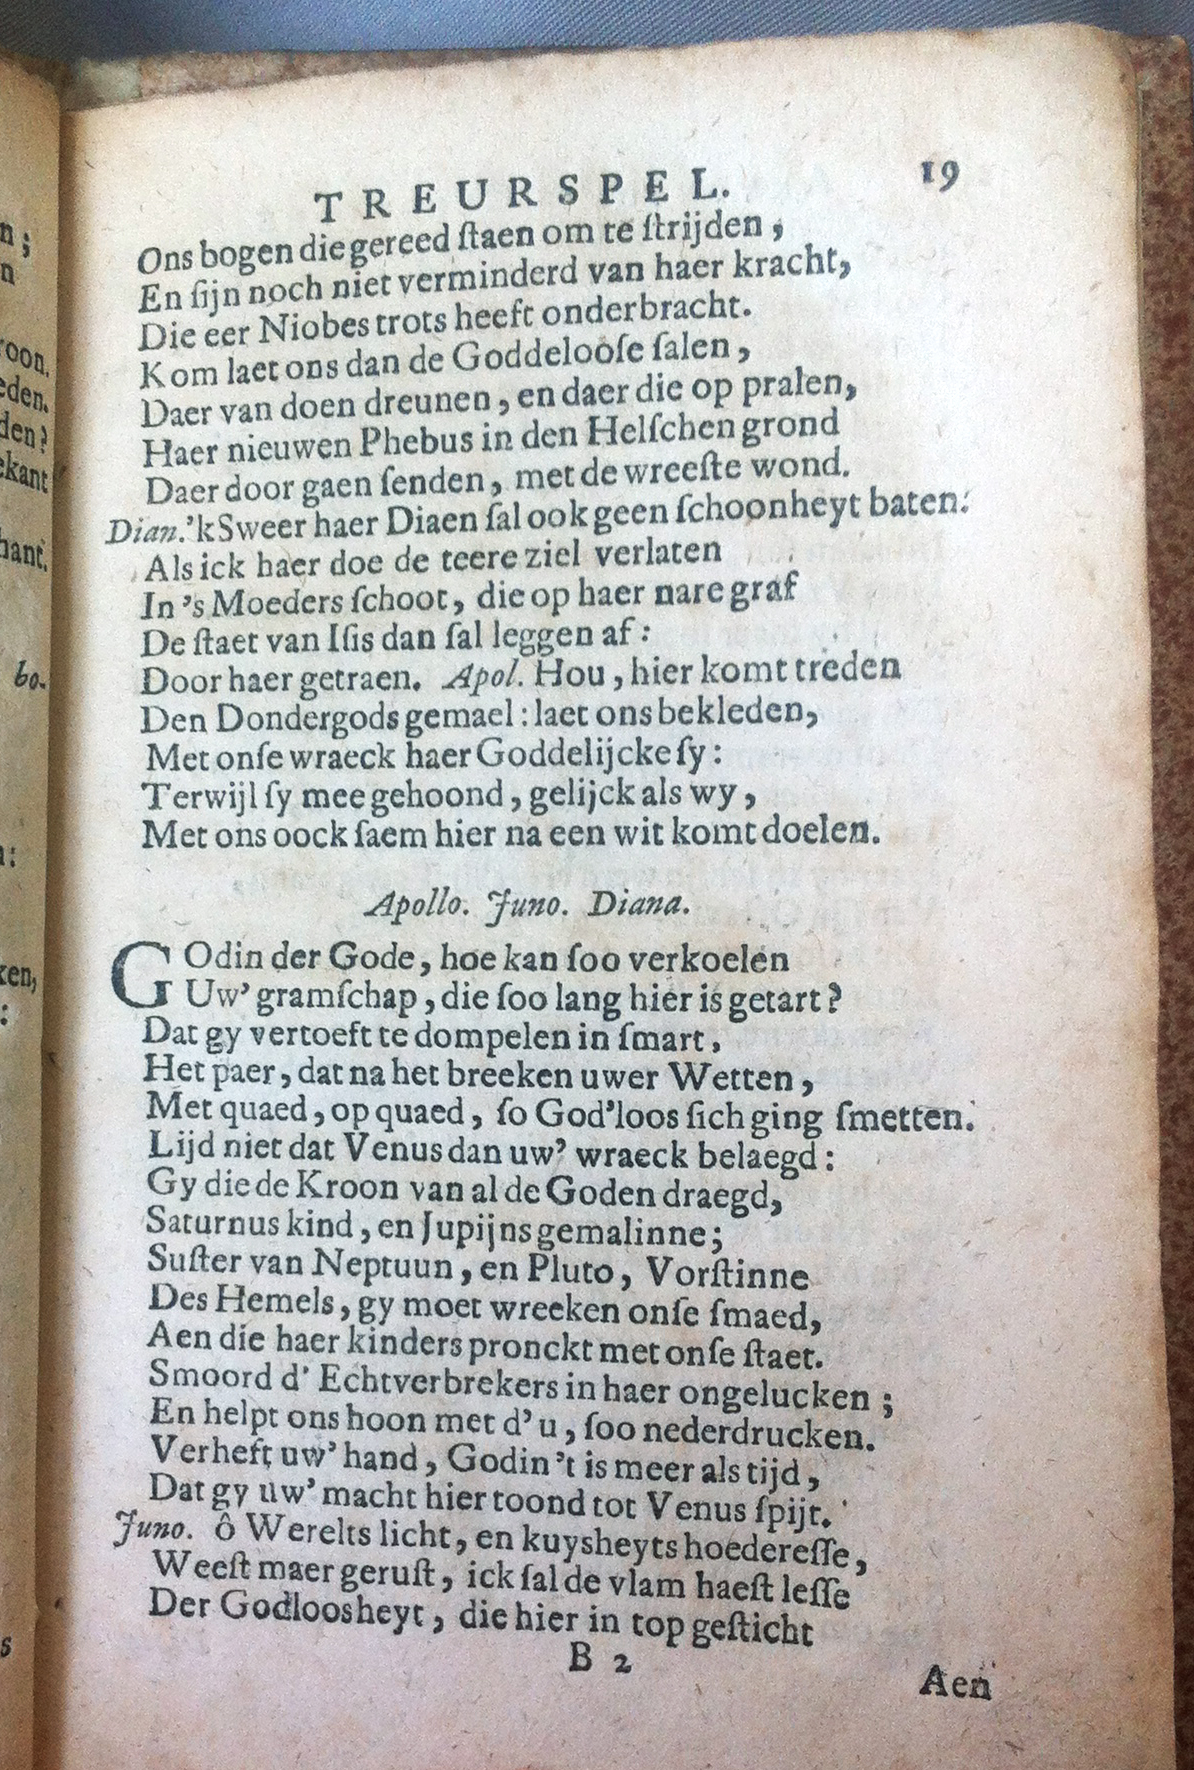 TREURSPEL. 19
Ons bogen die gereed ſtaen om te ſtrijden,
En ſijn noch niet verminderd van haer kracht,
Die eer Niobes trots heeft onderbracht.
Kom laet ons dan de Goddelooſe ſalen,
Daer van doen dreunen, en daer die op pralen,
Haer nieuwen Phebus in den Helſchen grond
Daer door gaen ſenden, met de wreeſte wond.
Dian. 'k Sweer haer Diaen ſal ook geen ſchoonheyt baten.
Als ick haer doe de teere ziel verlaten
In 's Moeders ſchoot, die op haer nare graf
De ſtaet van Iſis dan ſal leggen af:
Door haer getraen. Apol. Hou, hier komt treden
Den Dondergods gemael: laet ons bekleden,
Met onſe wraeck haer Goddelijcke ſy:
Terwijl ſy mee gehoond, gelijck als wy,
Met ons oock ſaem hier na een wit komt doelen.
Apollo. Juno. Diana.
GOdin der Gode, hoe kan ſoo verkoelen
Uw' gramſchap, die ſoo lang hier is getart?
Dat gy vertoeft te dompelen in ſmart,
Het paer, dat na het breeken uwer Wetten,
Met quaed, op quaed, ſo God'loos ſich ging ſmetten.
Lijd niet dat Venus dan uw' wraeck belaegd:
Gy die de Kroon van al de Goden draegd,
Saturnus kind, en Jupijns gemalinne;
Suſter van Neptuun, en Pluto, Vorſtinne
Des Hemels, gy moet wreeken onſe ſmaed,
Aen die haer kinders pronckt met onſe ſtaet.
Smoord d' Echtverbrekers in haer ongelucken;
En helpt ons hoon met d' u, ſoo nederdrucken.
Verheft uw' hand, Godin 't is meer als tijd,
Dat gy uw' macht hier toond tot Venus ſpijt.
Juno. ô Werelts licht, en kuysheyts hoedereſſe,
Weeſt maer geruſt, ick ſal de vlam haeſt leſſe
Der Godloosheyt, die hier in top geſticht
B 2
Aen